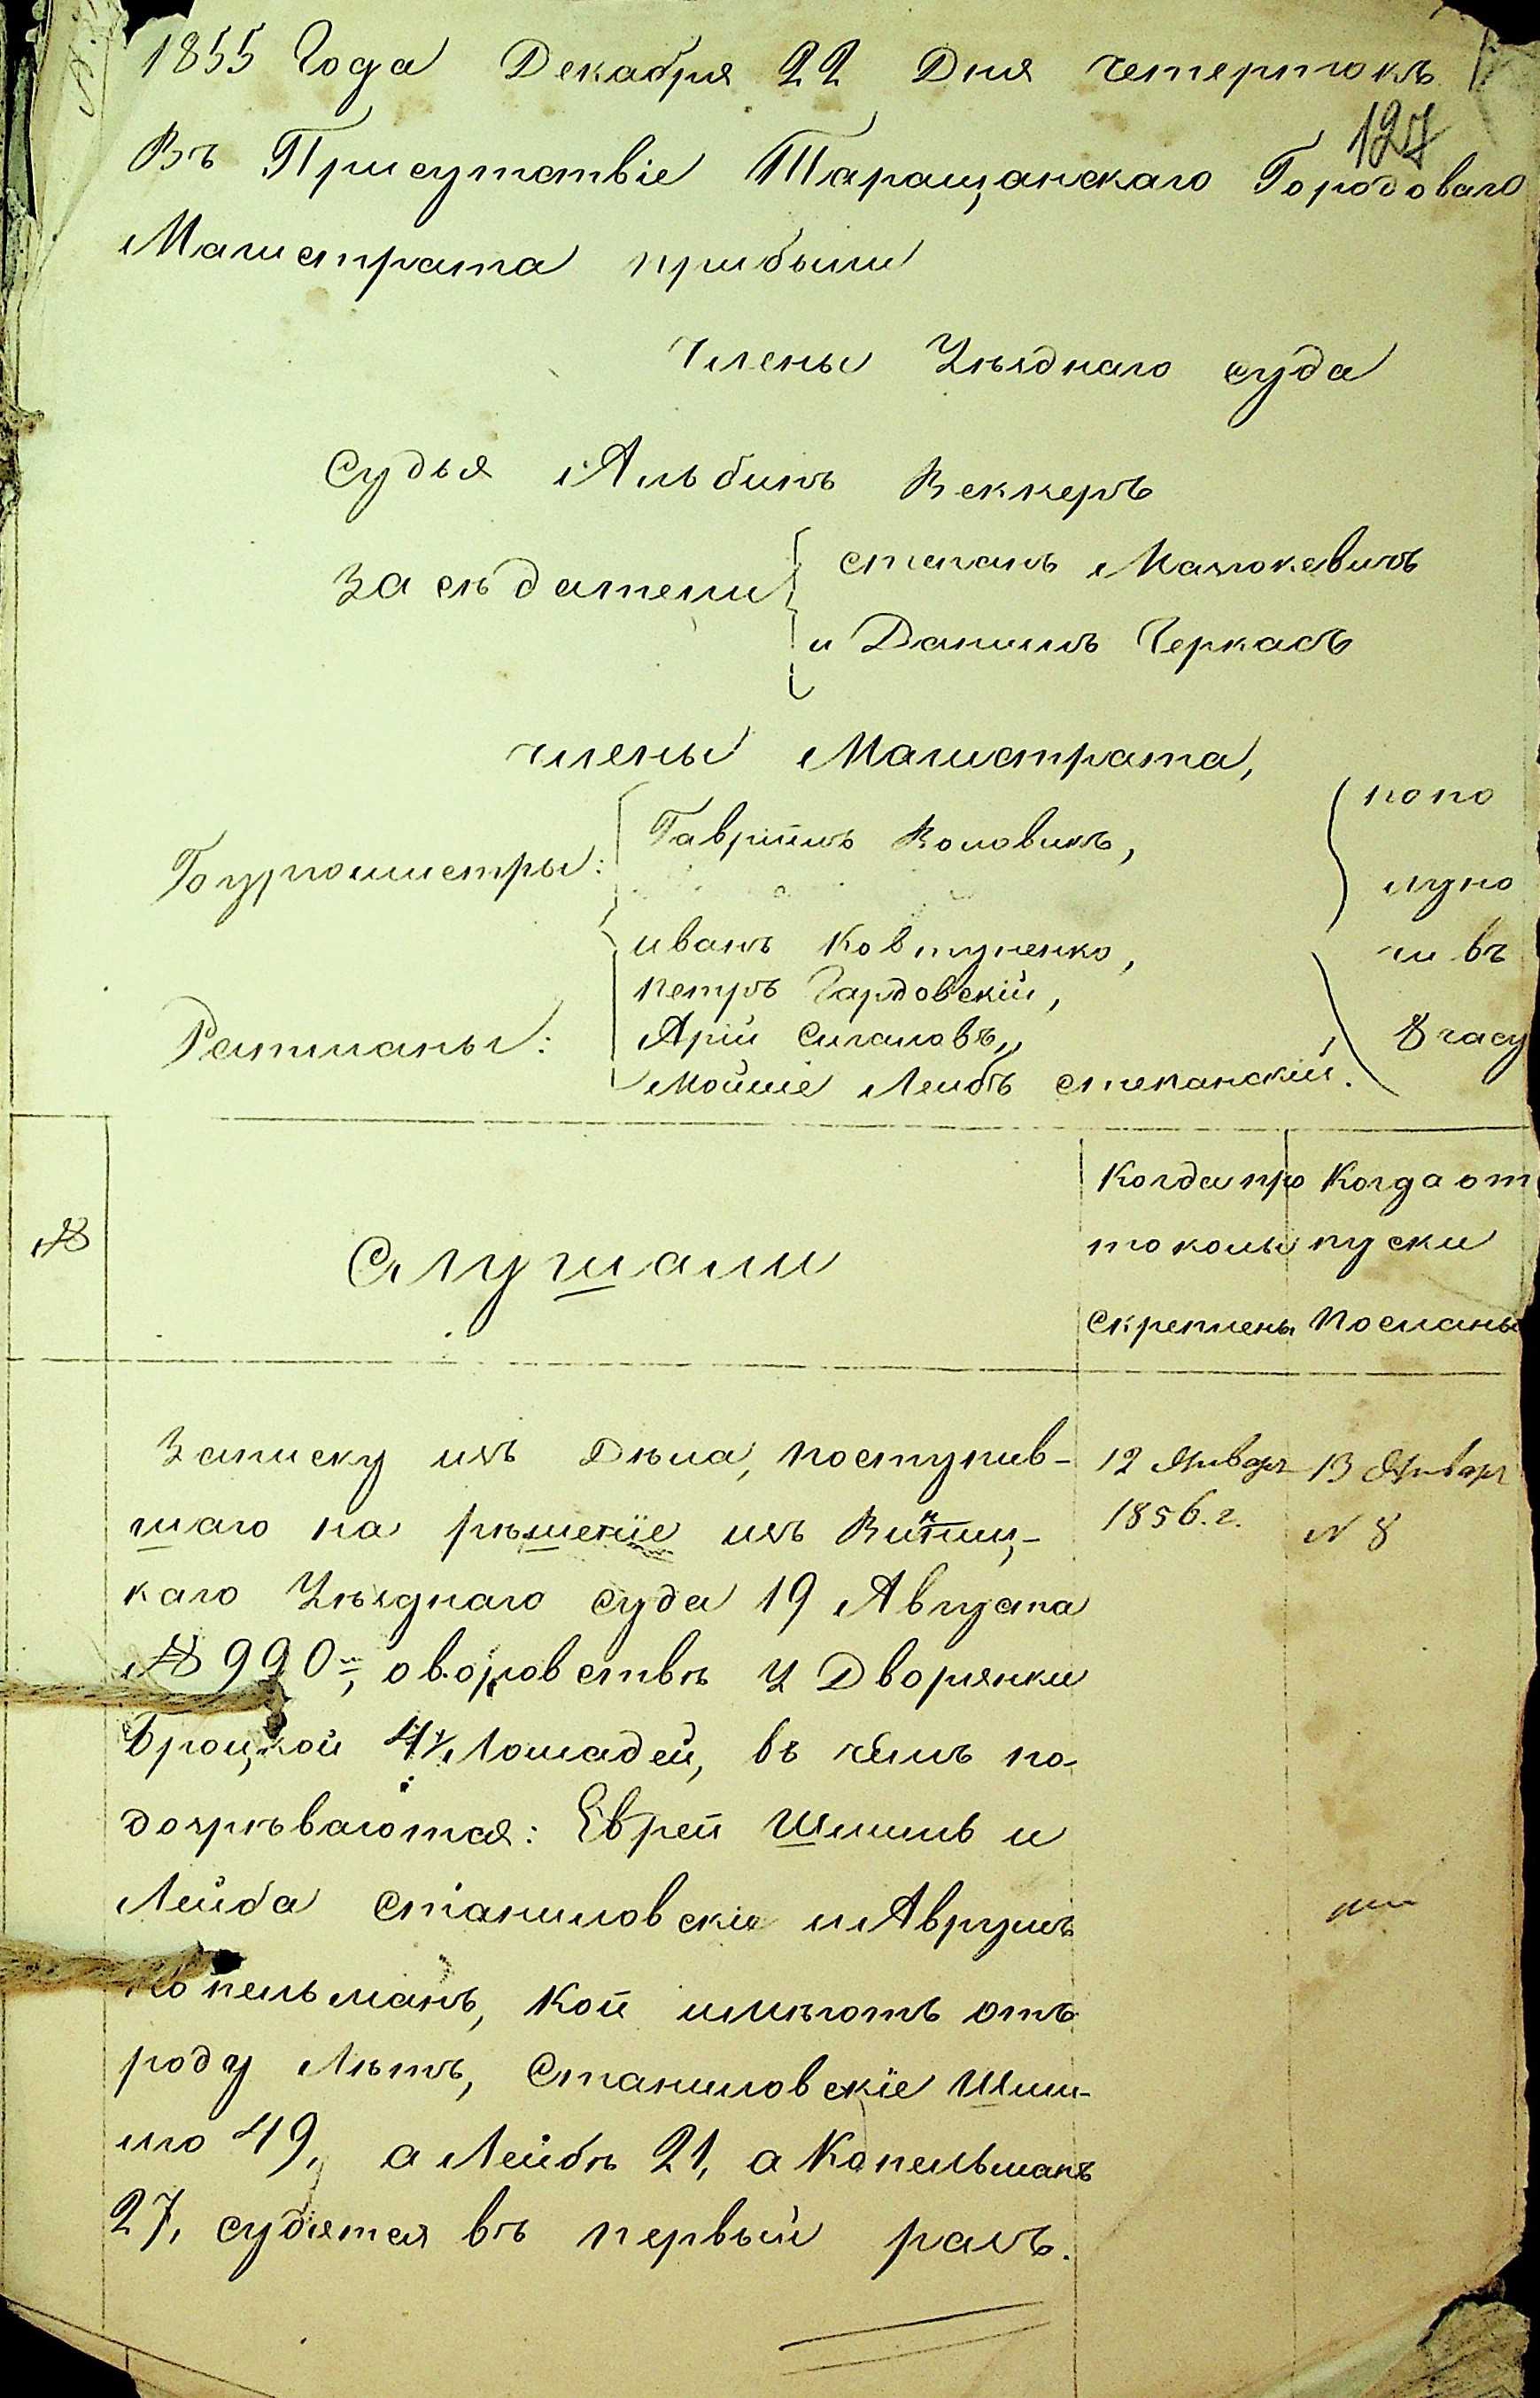 1855 Года Декабря 22 Дня четертокъ
127
Въ Присутствіе Таращанскаго Городоваго
Магистрата прибыли
Члены Уѣзднаго суда
Судья Альбинъ Веккеръ
Засѣдатели
степанъ Мазюкевичъ
и Данилъ Черкасъ
члены Магистрата,
Бургомистры:
Гавріилъ Воловикъ,
иванъ Ковтуненко,
Ратманы:
петръ Гардовскій,
Арій Сигаловъ,
Мойше Лейбъ степанскій.
попо
луно
чи въ
8 часу
№
Слушали
Когда про
токолы
скреплены
Когда от
пуски
посланы
Записку изъ Дѣла, поступив-
шаго на рѣшеніе изъ Винниц-
каго Уѣзднаго суда 19 Августа
№ 990, о воровствѣ у Дворянки
Броцкой 4х Лошадей, въ чёмъ по-
дозрѣваются: Еврей Шмиль и
Лейба Станиловскіе и Аврумъ
Копельманъ, кой имѣютъ отъ
роду Лѣтъ, Станиловскіе Шми-
лю 49, а Лейбѣ 21, а Копельманъ
27, судятся въ первый разъ.
12 Январ
1856. г.
13 Январ
N 8